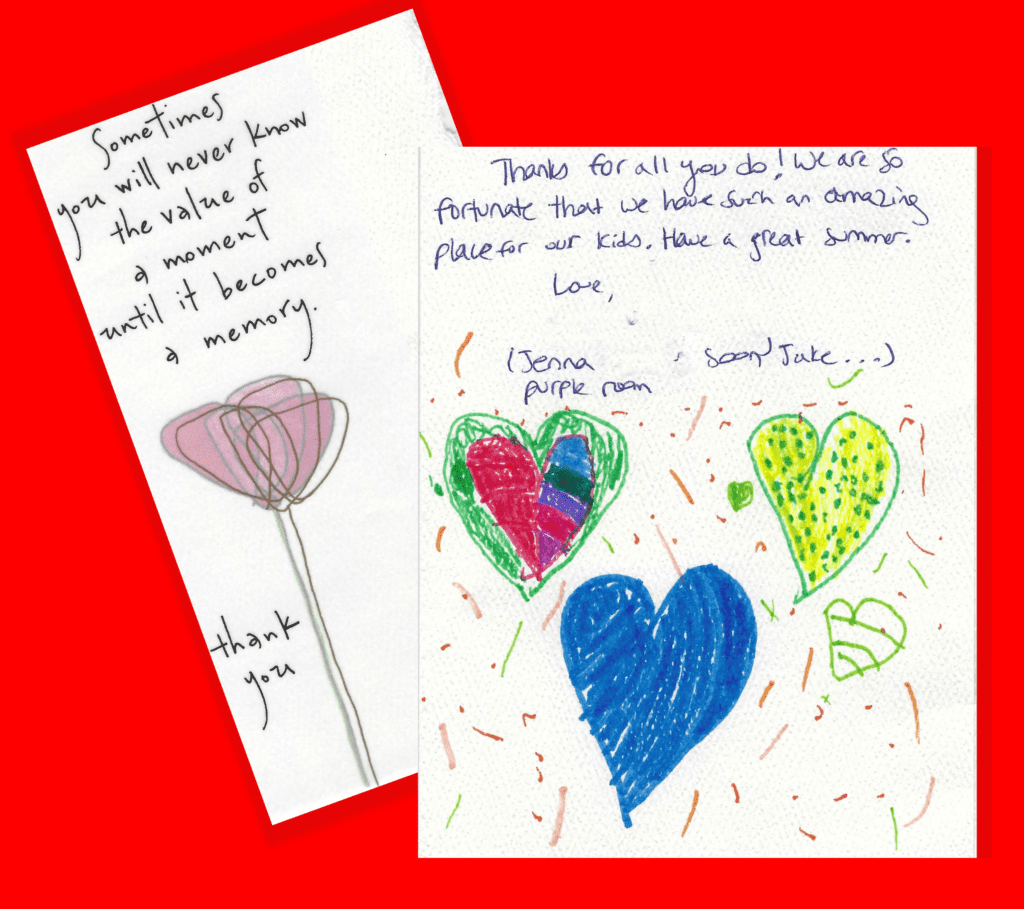 Sometimes
you will never know
the value of
a moment
until it becomes
a memory.
thank
you
Thanks for all you do! We are so
fortunate that we have such an amazing
place for our kids. Have a great summer.
Love,
(Jenna soon Jake...)
purple room